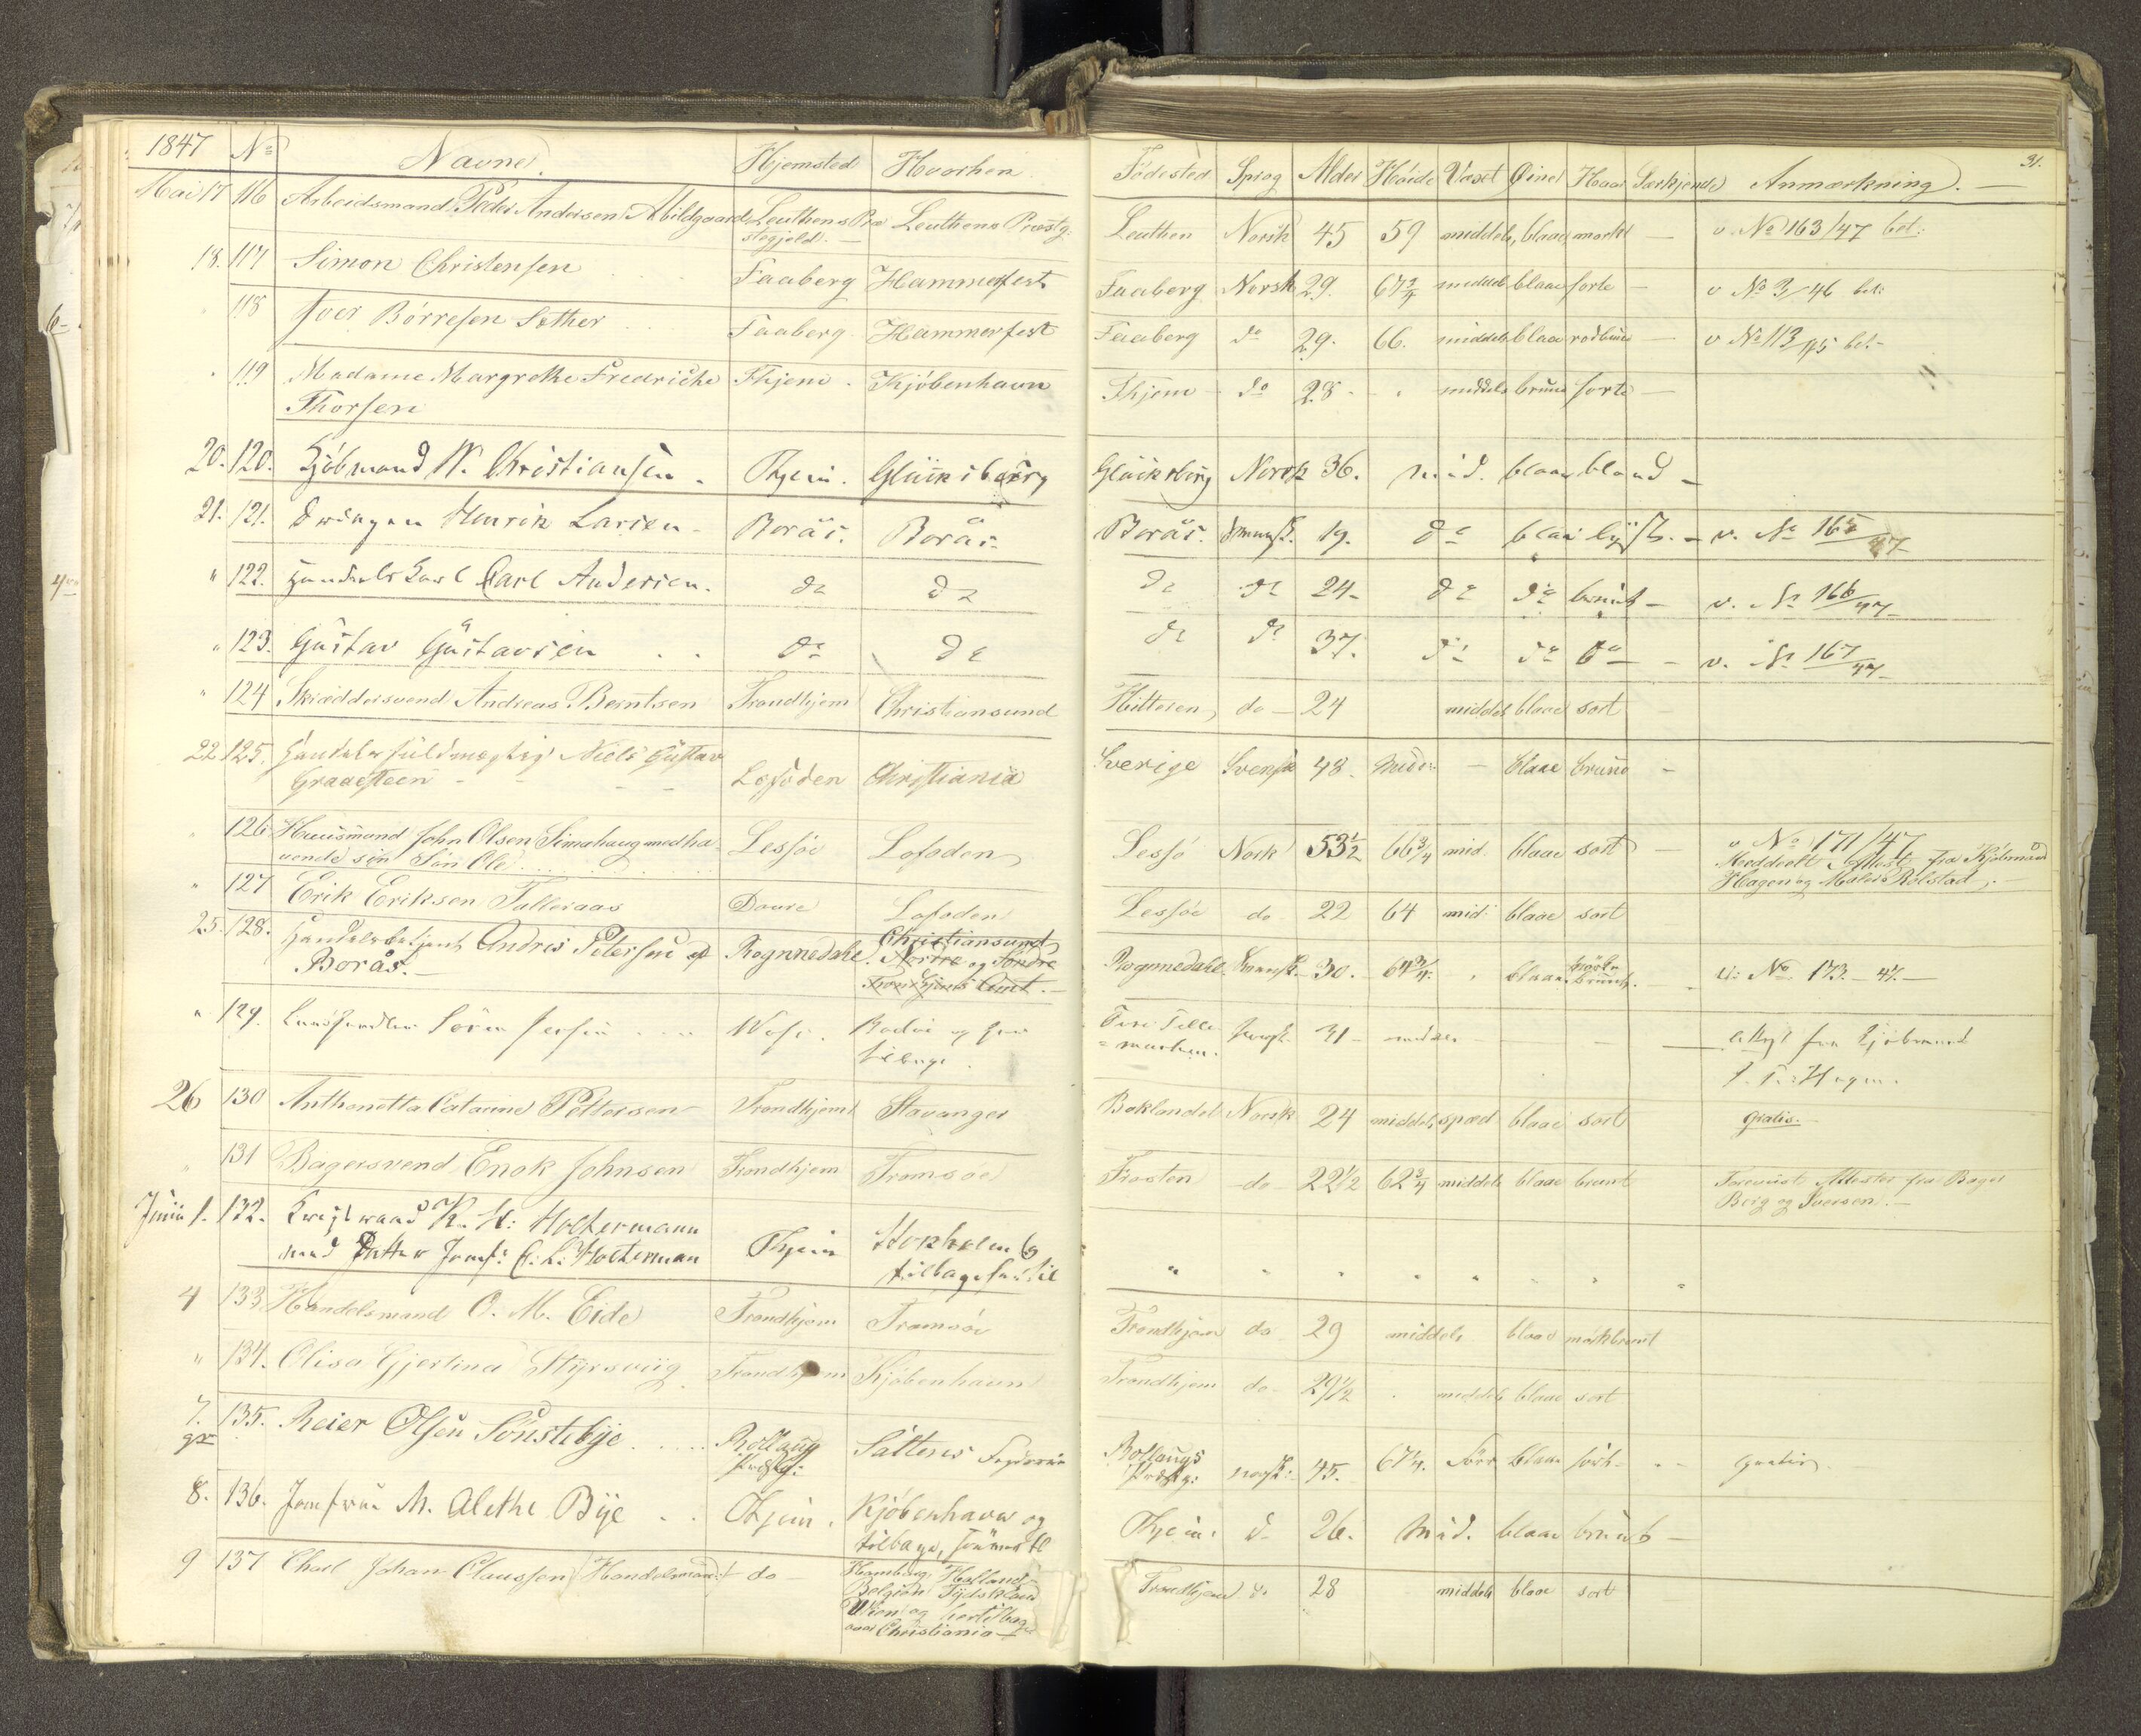 31.
1847 No Navne. Hjemsted Hvorhen Födested Sprog Alder Höide Væxt Öine Haar Særkjende Anmærkning. —
Mai 17 116 Arbeidsmand Peder Andersen Abildgaard Leuthens Præ Leuthens Præstg: Leuthen Norsk 45 59 middels, blaae, morkt — v No 163/47 bet:
stegjeld. —
18. 117 Simon Christensen Faaberg Hammerfest Faaberg Norsk 29. 67 3/4 middels blaae sorte — v No 3/46 bet:
" 118 Iver Börresen Sether Faaberg Hammerfest Faaberg do 29. 66. middels blaae rödbrune — v No 113/45 bet.
" 119 Madame Margrethe Fredriche Thjem. Kjöbenhavn Thjem do 28 " middels brune sorte —
Thorsen
20. 120. Kjöbmand W. Christiansen. Thjem. Glücksbürg Glücksbürg Norsk 36. mid. blaae blond —
21. 121. Drengen Henrik Larsen Borås. Borås. Borås. Svensk. 19. do blaae lyst. — v. No 165/47
" 122. Handelskarl Carl Andersen. do do do do 24 do do brunt — v. No 166/47
" 123. Güstav Güstavsen do do do do 37. do do do — v. No 167/47
" 124 Skræddersvend Andreas Berntsen Trondhjem Christiansund Hitteren do 24 middels blaae sort
22 125. Handelsfuldmægtig Niels Güstav
Graaesteen Lofoden Christiania Sverige Svensk 48. Mid: — blaae brune —
" 126 Huusmand John Olsen Simahaug medha= Lessöe Lofoden Lessö Norsk 53 1/2 66 3/4 mid. blaae sort — v No 171/47
vende sin Sön Ole Meddeelt Attest fra Kjöbmand
Hagen og Maler Rolstad. —
" 127 Erik Eriksen Talleraas Dovre Lofoden Lessöe do 22 64 mid: blaae sort
25. 128. Handelsbetjent Andres Petersen af Rognnedahl Christiansund Rognnedahl Svensk. 30. 64 3/4. " blaae mörk v: No. 173. — 47. —
Borås. — Nordre og Söndre brunt.
Trondhjems Amt. —
" 129. Landhandler Sören Jessen Bodöe og her Norsk. 31 — middels — — attest fra Kjöbmand
tilbage. marken. Hagen.
26 130 Anthonetta Catarine Pettersen Trondhjem Stavanger Baklandet Norsk 24 middels, spæd blaae sort gratis.
" 131 Bagersvend Enok Johnsen Trondhjem Tromsöe Frosten do 22 1/2 62 3/4 middels blaae brunt Foreviist Attester fra Bager
Berg og Iversen. —
Junii 1. 132. K. H: Holtermann Thjem Stokholm og " " " " " " " "
med Datter Jomf: C. L. Holterman tilbage
4 133 Handelsmand O. M. Eide Trondhjem Tromsöe Trondhjem do 29 middels blaae mörkbrunt
" 134. Olisa Gjertina Styrsviig Trondhjem Kjöbenhavn Trondhjem do 29 1/2 " middels blaae sort
7. 135. Reier Olsen Sönstebye Rollaug Saltens Fogderie Rollaugs norsk: 45. 67 1/4. blaae sort — gratis.
gr Præstg: Præstg:
8. 136. Jomfrue M. Alethe Bye Thjem. Kjöbenhavn og Thjem. do 26. mid. blaae brunt —
tilbage,
9 137 Charl Johan Claussen (Handelsmand) do Hamburg, Holland Trondhjem do 28 middels blaae sort
Belgien Tydskland
Wien og hertilbage
over Christiania